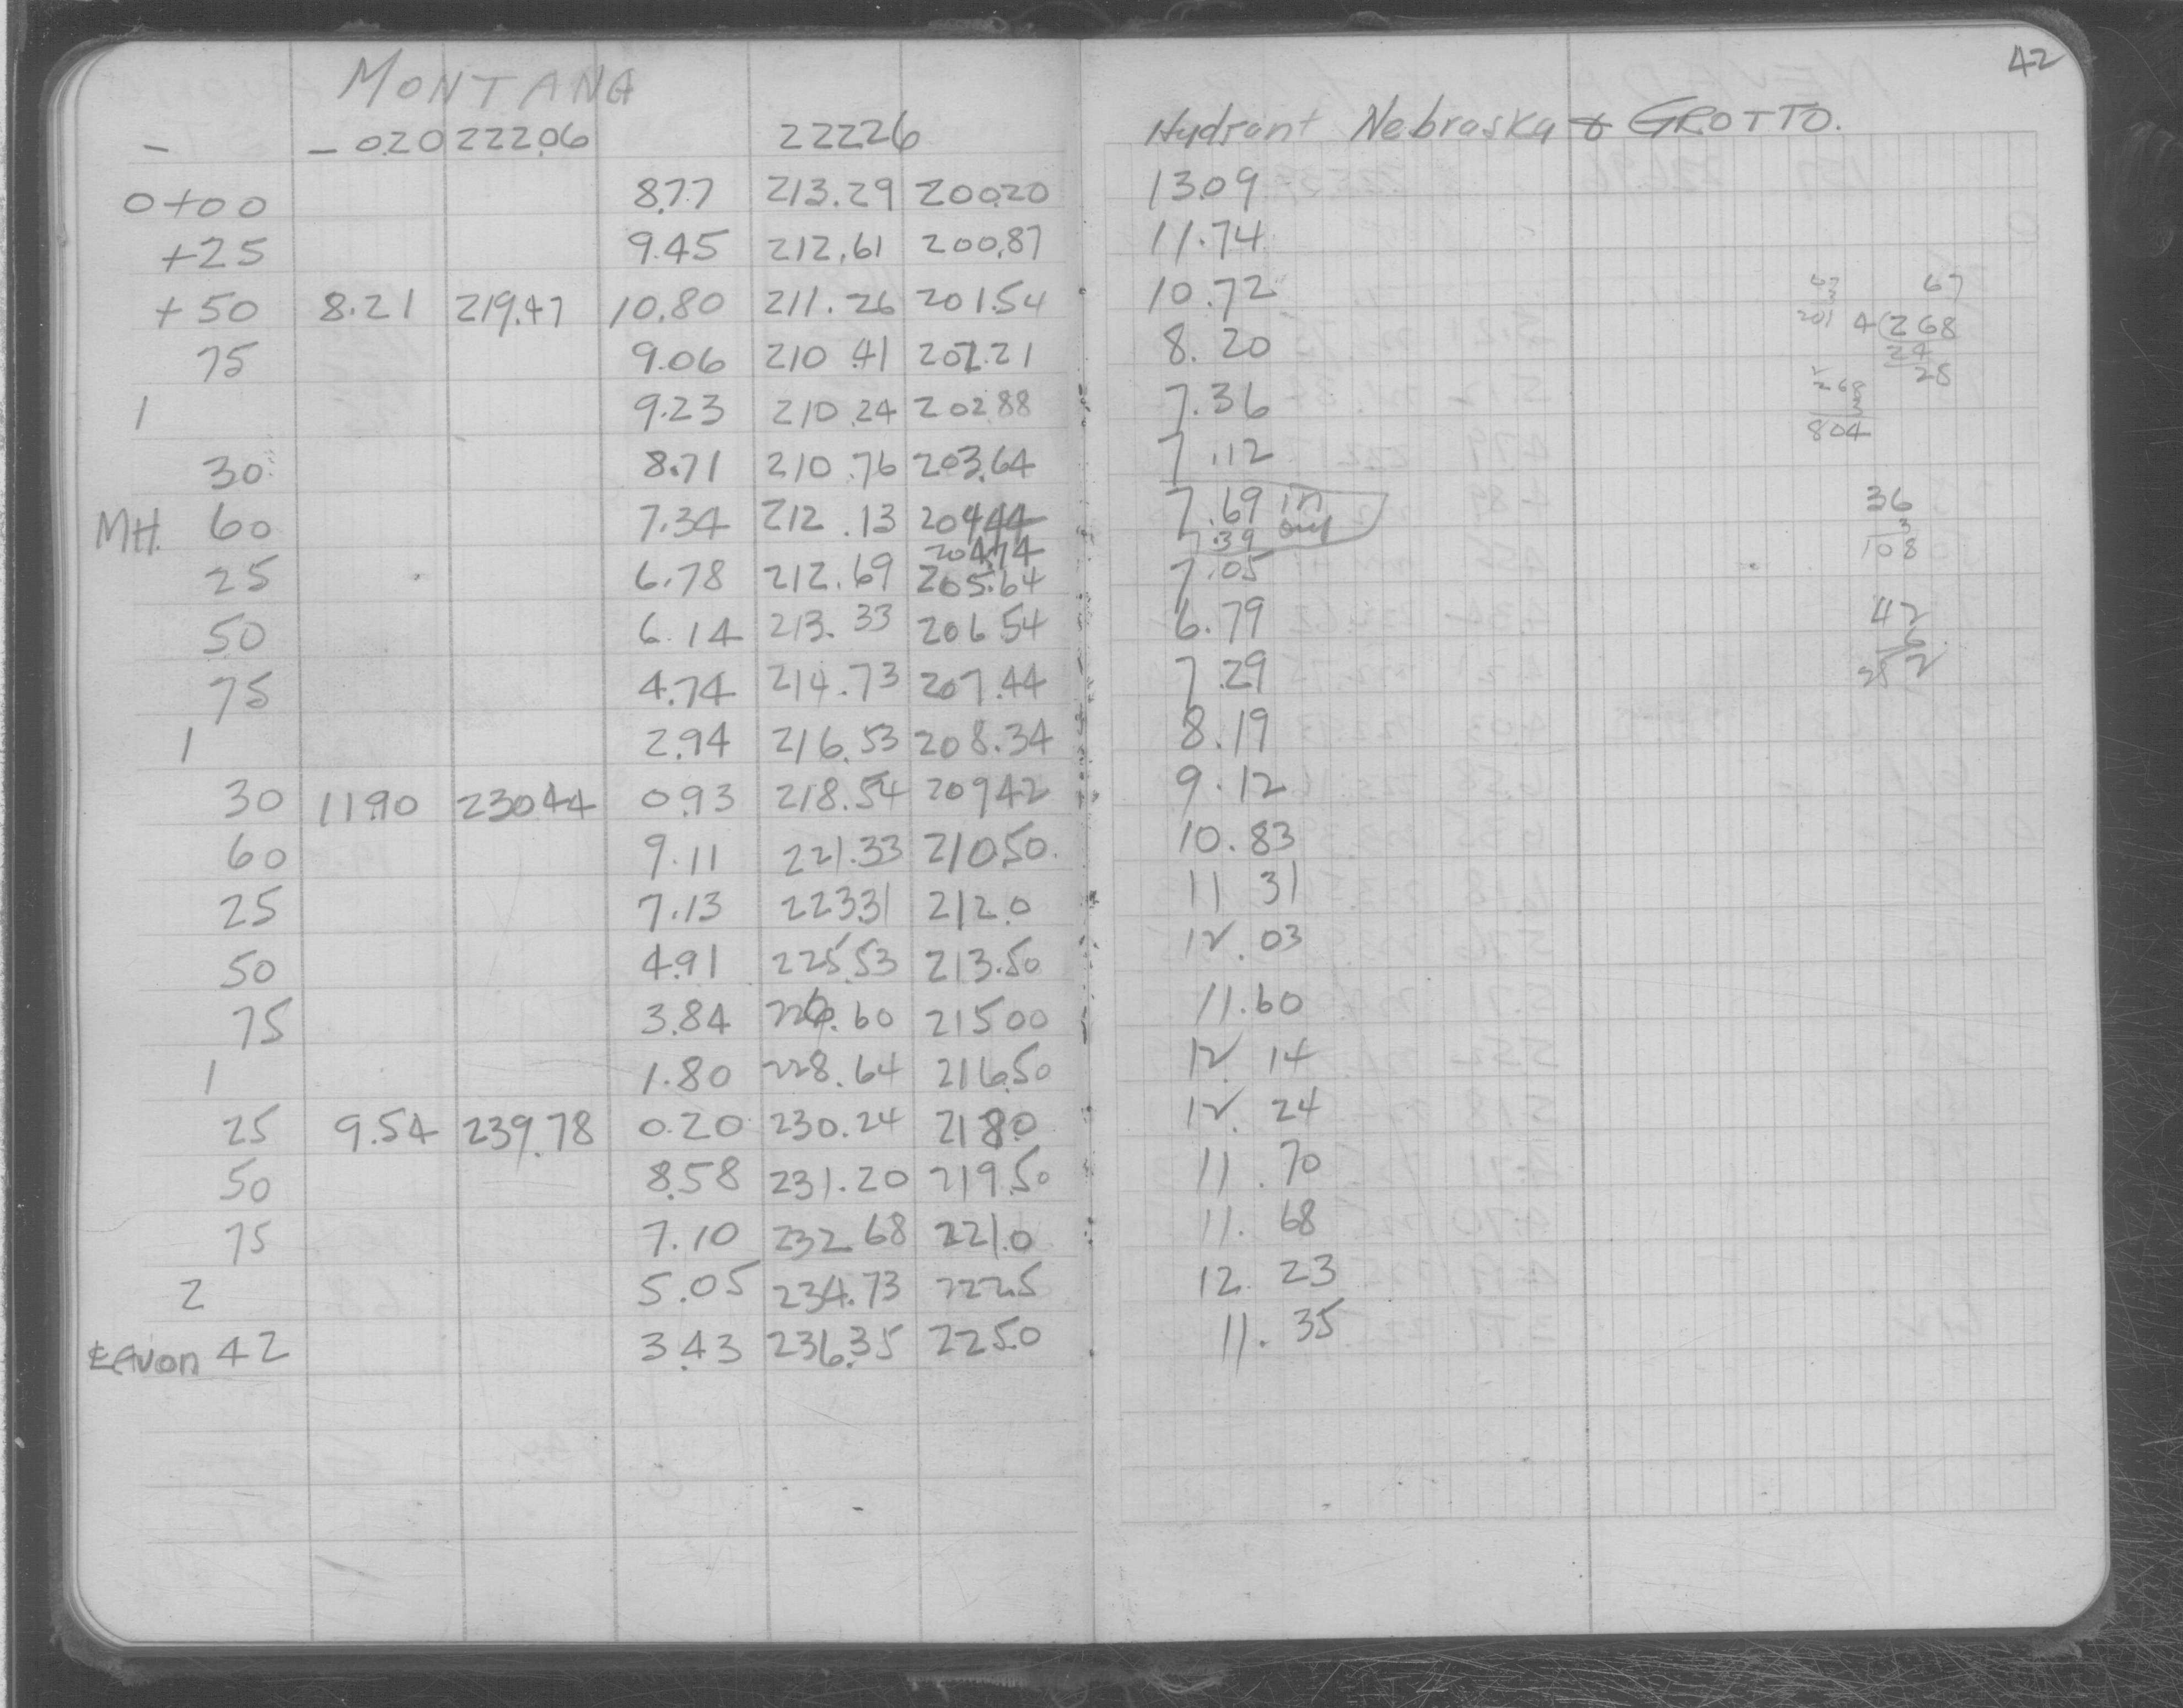 42
MONTANA
- -020 22206 22226 Hydrant Nebraska & GROTTO.
0+00 8.77 213.29 20020 1309
+25 9.45 212.61 200.87 11.74
+50 8.21 219.47 10.80 211.26 201.54 10.72
75 9.06 210.41 202.21 8.20
1 9.23 210.24 20288 7.36
30 8.71 210.76 203.64 7.12
MH. 60 7.34 212.13 20444 7.69 in
20474 7.39 out
25 6.78 212.69 205.64 7.05
50 6.14 213.33 20654 6.79
75 4.74 214.73 207.44 7.29
1 2.94 216.53 208.34 8.19
30 1190 23044 093 218.54 20942 9.12
60 9.11 221.33 21050. 10.83
25 7.13 22331 212.0 11 31
50 4.91 225.53 213.50 12.03
75 3.84 226.60 21500 11.60
1 1.80 228.64 216.50 12 14
25 9.54 239.78 0.20 230.24 2180 12. 24
50 8.58 231.20 219.50 11.70
75 7.10 232 68 221.0 11. 68
2 5.05 234.73 222.5 12. 23
Avon 42 3.43 236.35 225.0 11. 35
67 67
3
201 4(268
24
28
268
3
804
36
3
108
42
6
252